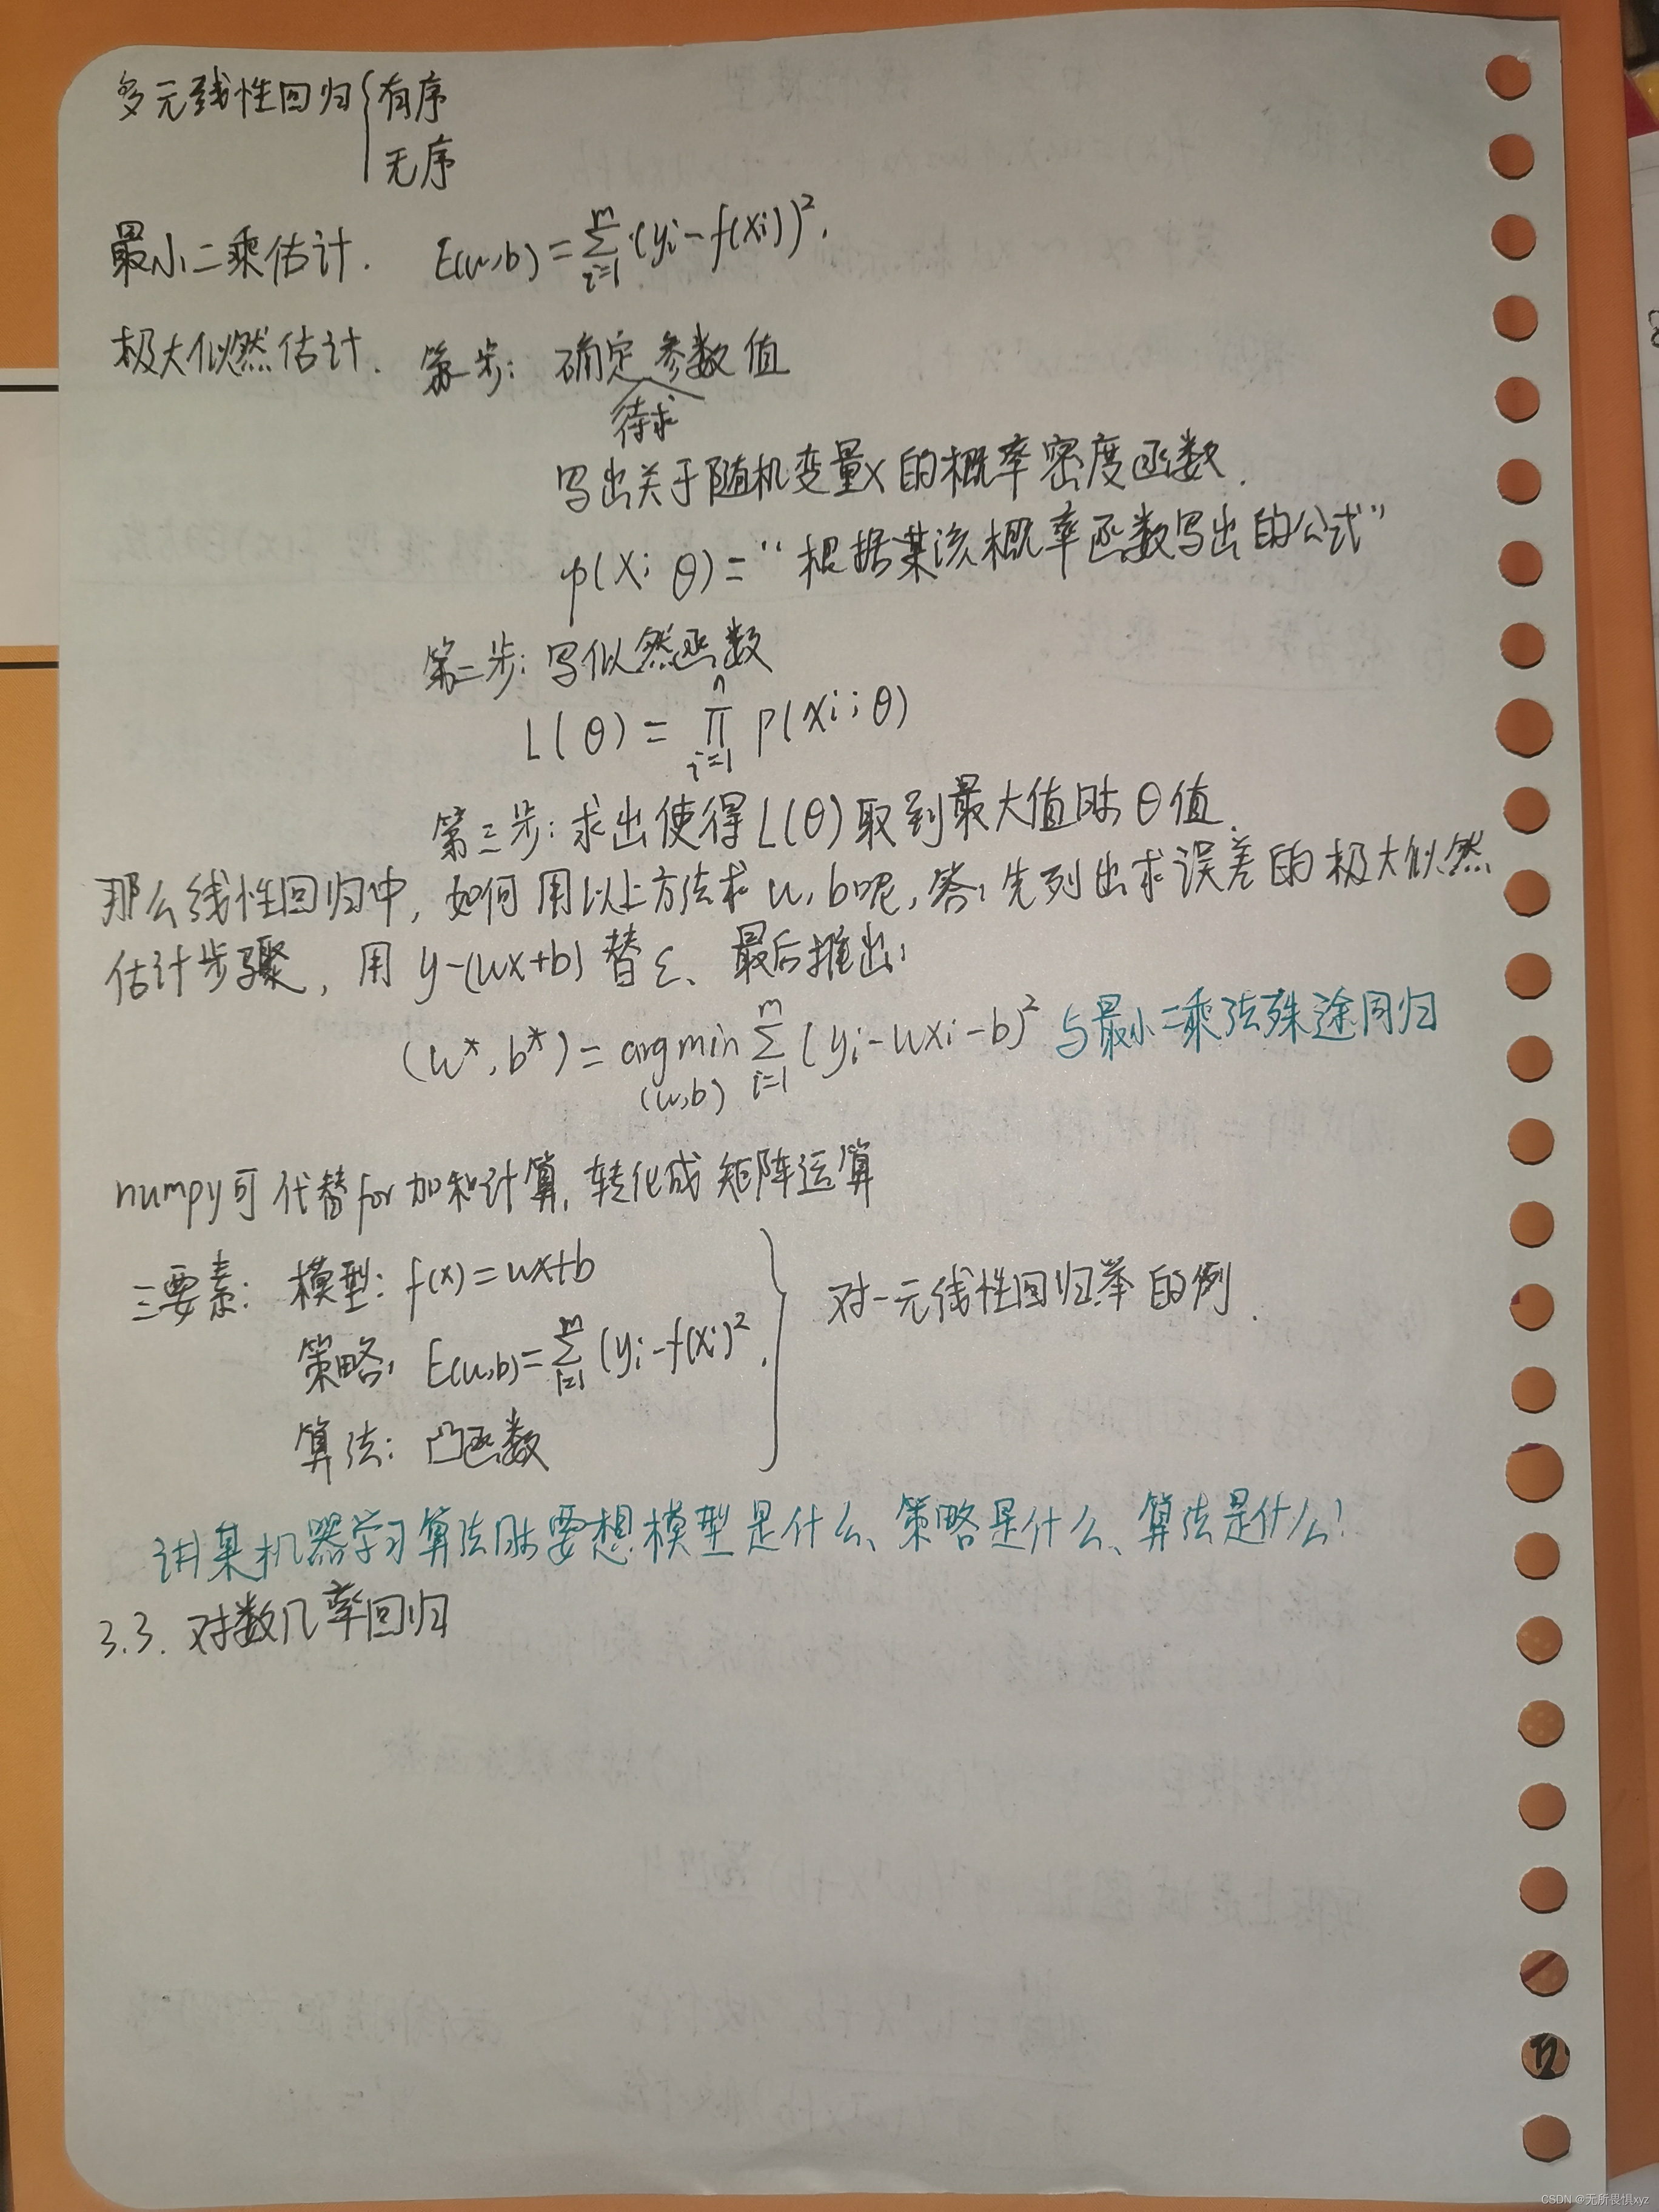 多元线性回归{有序
无序
最小二乘估计. E(w,b)=∑_{i=1}^{m}(yi-f(xi))².
极大似然估计. 第一步: 确定参数值
待求
写出关于随机变量x的概率密度函数.
p(x;θ)=“根据某该概率函数写出的公式”
第二步: 写似然函数
L(θ)=∏_{i=1}^{n}p(xi;θ)
第三步: 求出使得L(θ)取到最大值时θ值.
那么线性回归中, 如何用以上方法求w,b呢, 答: 先列出求误差的极大似然
估计步骤, 用y-(wx+b)替ε、最后推出:
(w*,b*)=argmin_{(w,b)}∑_{i=1}^{m}(yi-wxi-b)² 与最小二乘法殊途同归
numpy可代替for加和计算, 转化成矩阵运算
三要素: 模型: f(x)=wx+b
策略: E(w,b)=∑_{i=1}^{m}(yi-f(xi)². } 对一元线性回归举的例.
算法: 凸函数
讲某机器学习算法时要想模型是什么、策略是什么、算法是什么!
3.3. 对数几率回归
CSDN @无所畏惧xyz